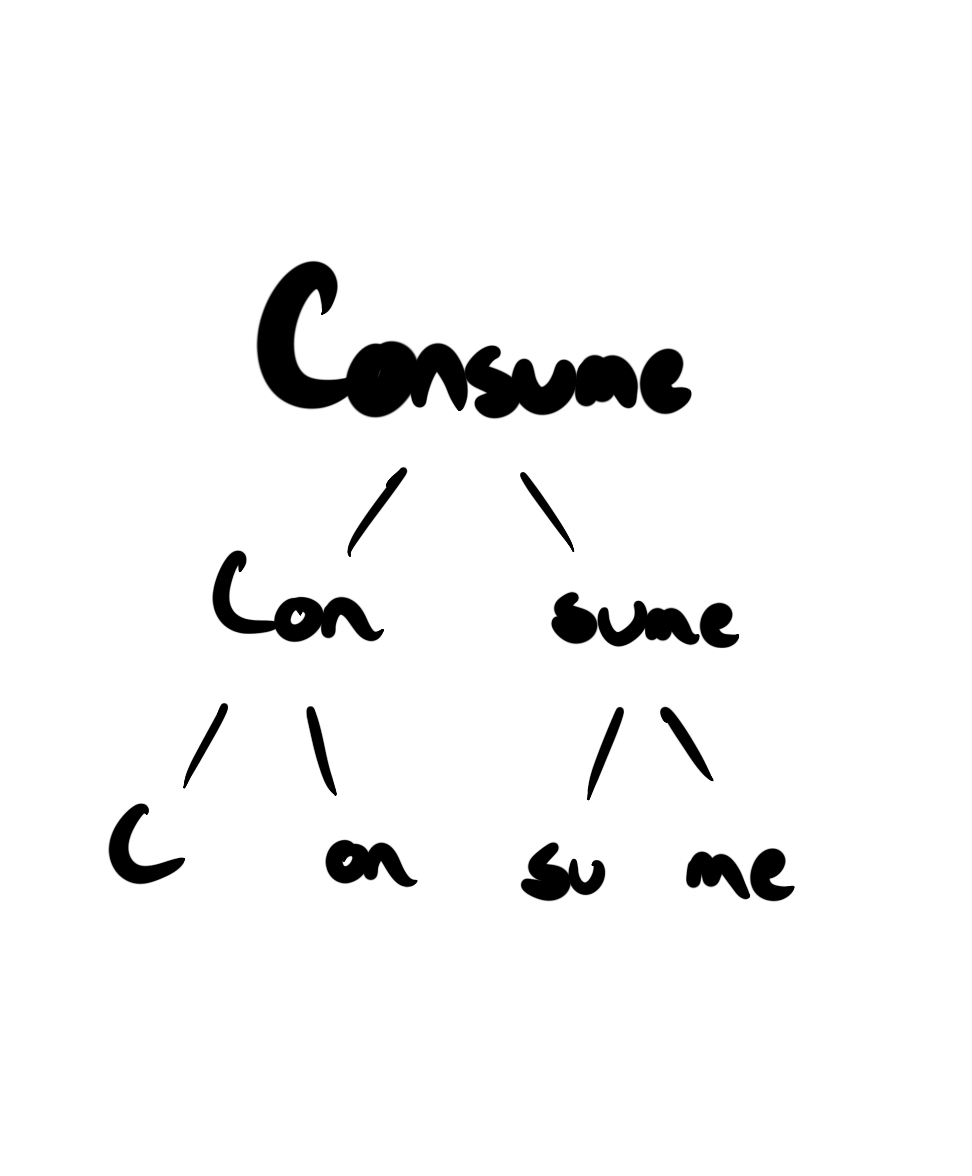 Consume
Con sume
C on su me